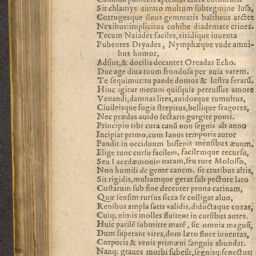 Sit chlamys aurato multum subtegmine lusa,
Corrugesque sinus gemmatis baltheus arctet
Nexibus: implicitos cohibe diademate crines.
Tecum Naiades faciles, viridique iuuenta
Pubentes Dryades, Nymphæque vnde amni-
bus humor,
Adsint, & docilis decantet Oreadas Echo.
Duc age diua tuum frondosa per auia vatem.
Te sequimur: tu pande domos & lustra ferarū.
Hinc igitur mecum quisquis percussus amore
Venandi, damnas lites, auidosque tumultus,
Ciuileisque fugis strepitus, bellique fragores,
Nec prædas auido sectaris gurgite ponti.
Principio tibi cura canū non segnis ab anno
Incipiat primo, cum Ianus temporis autor
Pandit in occiduum bissenis mensibus æuum.
Elige tunc cursu facilem, facilemque recursu,
Seu Lacedæmonio natam, seu rure Molosso,
Non humili de gente canem. sit cruribus altis,
Sit rigidis, multamque gerat sub pectore lato
Costarum sub fine decenter prona carinam,
Quæ sensim rursus sicca se colligat aluo,
Renibus ampla satis validis, diductaque coxas,
Cuiq; nimis molles fluitent in cursibus aures.
Huic parilē submitte marē, sic omnia magnū,
Dum superant vires, dum læto flore iuuentas,
Corporis & venis primæui sanguis abundat.
Namq; graues morbi subeūt, segnisq; senectus